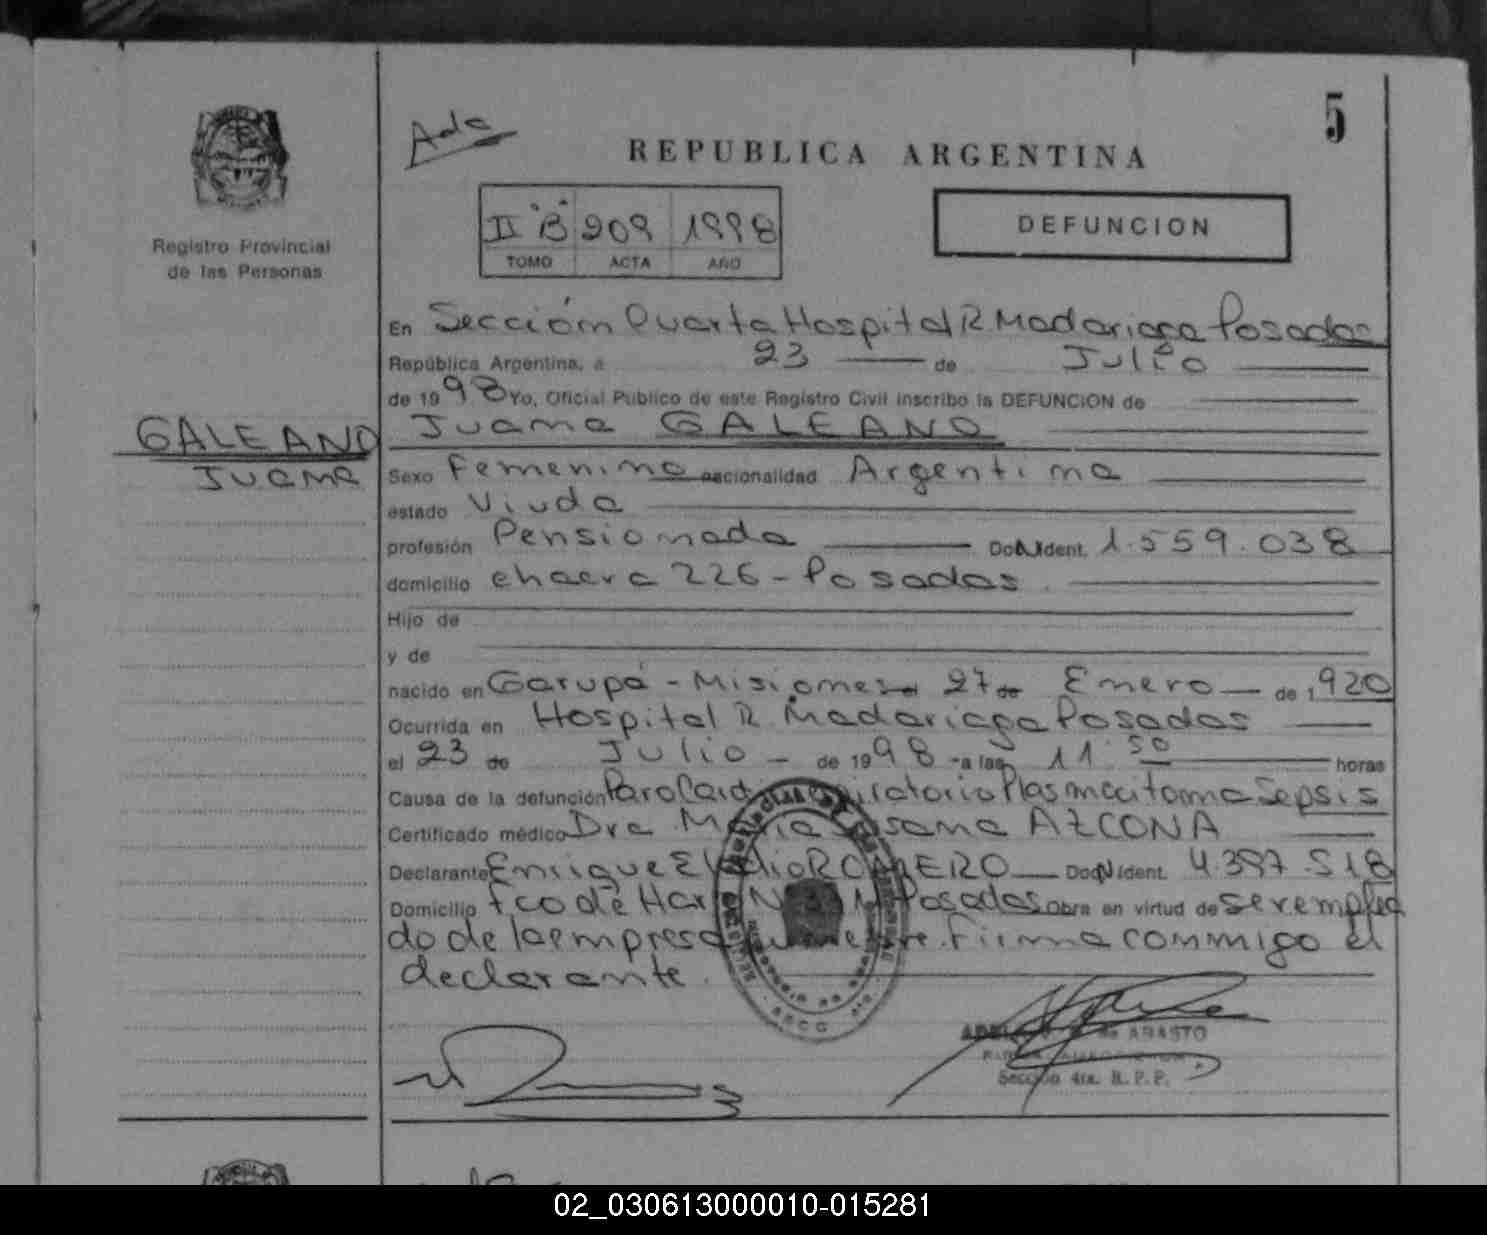 5
Ada
REPUBLICA ARGENTINA
Registro Provincial
de las Personas
II "B" 209 1998
TOMO ACTA AÑO
DEFUNCION
En Sección Cuarta Hospital R. Madariaga Posadas
República Argentina, a 23 de Julio
de 1998 Yo, Oficial Público de este Registro Civil inscribo la DEFUNCION de
GALEANO
Juana
Juana GALEANO
Sexo Femenino nacionalidad Argentina
estado Viuda
profesión Pensionada Doc. Ident. 1.559.038
domicilio chacra 226 - Posadas
Hijo de
y de
nacido en Garupá - Misiones 27 de Enero de 1920
Ocurrida en Hospital R. Madariaga Posadas
el 23 de Julio - de 1998 - a las 11:50 horas
Causa de la defunción Paro Plasmocitoma Sepsis
Certificado médico Dra. AZCONA
Declarante Enrique ROMERO Doc. Ident. 4.397.518
Domicilio Fco de Haro Posadas obra en virtud de ser emplea
do de la empresa firma conmigo el
declarante.
de ABASTO
Sección 4ta. R.P.P.
02_030613000010-015281